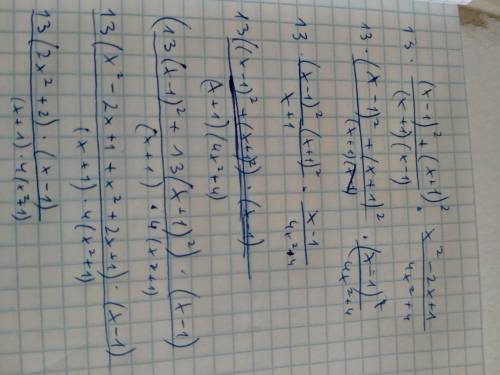 13 · ((x-1)² + (x+1)²) / ((x+1)(x-1)) · (x² - 2x + 1) / (4x² + 4)
13 · ((x-1)² + (x+1)²) / ((x+1)(x-1)) · (x-1)² / (4x² + 4)
13 · ((x-1)² (x+1)²) / (x+1) · (x-1) / (4x² + 4)
13((x-1)² + (x+1)²) · (x-1) / ((x+1)(4x² + 4))
(13(x-1)² + 13(x+1)²) · (x-1) / ((x+1) · 4(x²+1))
13(x² - 2x + 1 + x² + 2x + 1) · (x-1) / ((x+1) · 4(x²+1))
13(2x² + 2) · (x-1) / ((x+1) · 4(x²+1))